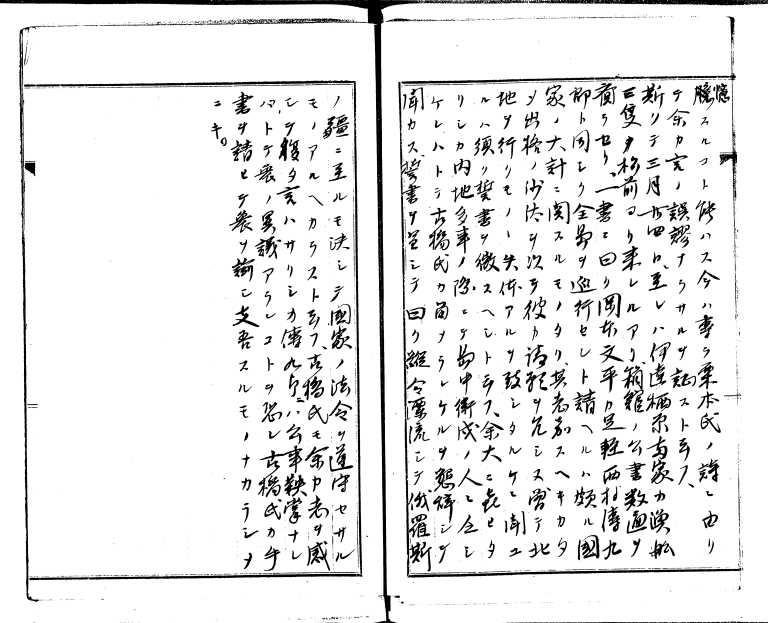 憶
臆スルコト能ハス今ハ専ラ栗本氏ノ詩ニ由リ
テ余カ言ノ誤謬ナラサルヲ証スト云フ、
斯リテ三月廿四日ニ至レハ伊達栖原両家カ漁船
三隻夕松前ヨリ来レルアリ箱館ノ公書数通ヲ
齎ラセリ一書ニ曰ク岡本文平カ足軽西村傳九
郎ト同シク全島ヲ巡行セント請ヘルハ頗ル国
家ノ大計ニ関スルモノタリ其志嘉スヘキカタ
メ出格ノ沙汰ヲ以テ彼カ請願ヲ允シス曽テ北
地ヲ行リモノ失体アルヲ致シタルケレハ
ルハ須ク誓書ヲ徴スヘシト云フ、余大ニ喜ヒタ
リシカ内地多事ノ際ニテ島中衛戍ノ人ニ乏シ
ケレハトテ古橋氏カ肯ラケルヲ懇辞シテ
聞カス誓書ヲ呈シテ曰ク縦令漂流シテ俄羅斯
ノ疆ニ至ルモ決シテ国家ノ法令ヲ遵守セサル
モノアルヘカラスト云フ、古橋氏モ余カ志ヲ感
シテ復タ言ハサリシカ傳九郎ハ公事鞅掌ナレ
ハトテ衆ノ異議アランコトヲ恐レ古橋氏カ手
書ヲ請ヒテ衆ヲ諭シ支吾スルモノナカラシメ
ニキ。